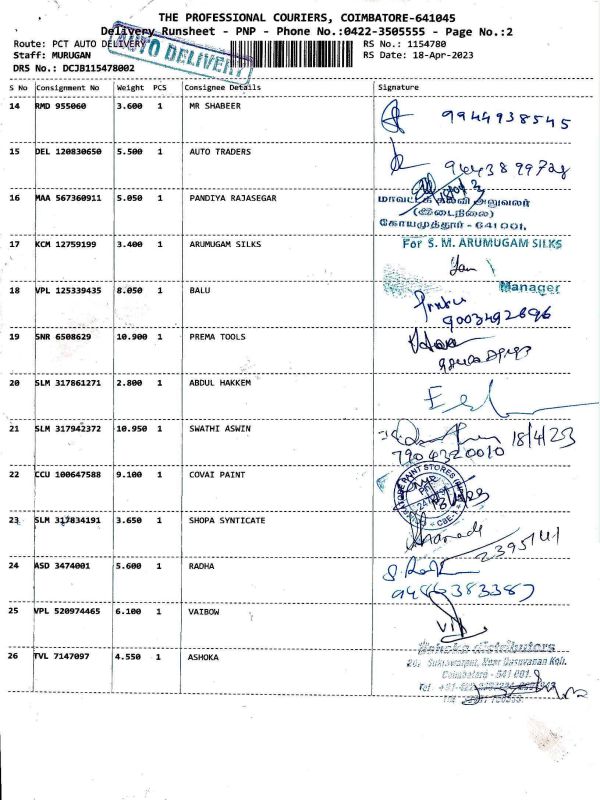 THE PROFESSIONAL COURIERS, COIMBATORE-641045
Delivery Runsheet - PNP - Phone No.:0422-3505555 - Page No.:2
Route: PCT AUTO DELIVERY
RS No.: 1154780
Staff: MURUGAN
RS Date: 18-Apr-2023
DRS No.: DCJB115478002
AUTO DELIVERY
S No Consignment No Weight PCS Consignee Details Signature
14 RMD 955060 3.600 1 MR SHABEER
9944938545
15 DEL 120830650 5.500 1 AUTO TRADERS
16 MAA 567360911 5.050 1 PANDIYA RAJASEGAR
மாவட்டக் கல்வி அலுவலர்
(இடைநிலை)
கோயமுத்தூர் - 641 001.
17 KCM 12759199 3.400 1 ARUMUGAM SILKS
For S. M. ARUMUGAM SILKS
Manager
18 VPL 125339435 8.050 1 BALU
9003492696
19 SNR 6508629 10.900 1 PREMA TOOLS
20 SLM 317861271 2.800 1 ABDUL HAKKEM
21 SLM 317942372 10.950 1 SWATHI ASWIN
18/4/23
7904320010
22 CCU 100647588 9.100 1 COVAI PAINT
PAINT STORES
CBE-1
23 SLM 317834191 3.650 1 SHOPA SYNTICATE
2395141
24 ASD 3474001 5.600 1 RADHA
9486383387
25 VPL 520974465 6.100 1 VAIBOW
26 TVL 7147097 4.550 1 ASHOKA
Ashoka distributors
Coimbatore - 641 001.